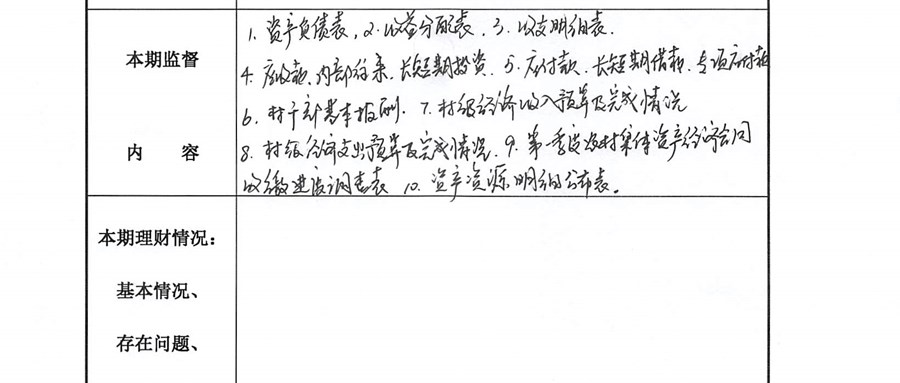 本期监督
内 容
1. 资产负债表, 2. 收益分配表, 3. 收支明细表.
4. 应收款、内部往来、长短期投资. 5. 应付款、长短期借款、专项应付款
6. 村干部基本报酬. 7. 村级经济收入预算及完成情况
8. 村级经济支出预算及完成情况. 9. 第一季度村集体资产经济合同
收缴进度调查表 10. 资产资源明细公布表。
本期理财情况：
基本情况、
存在问题、